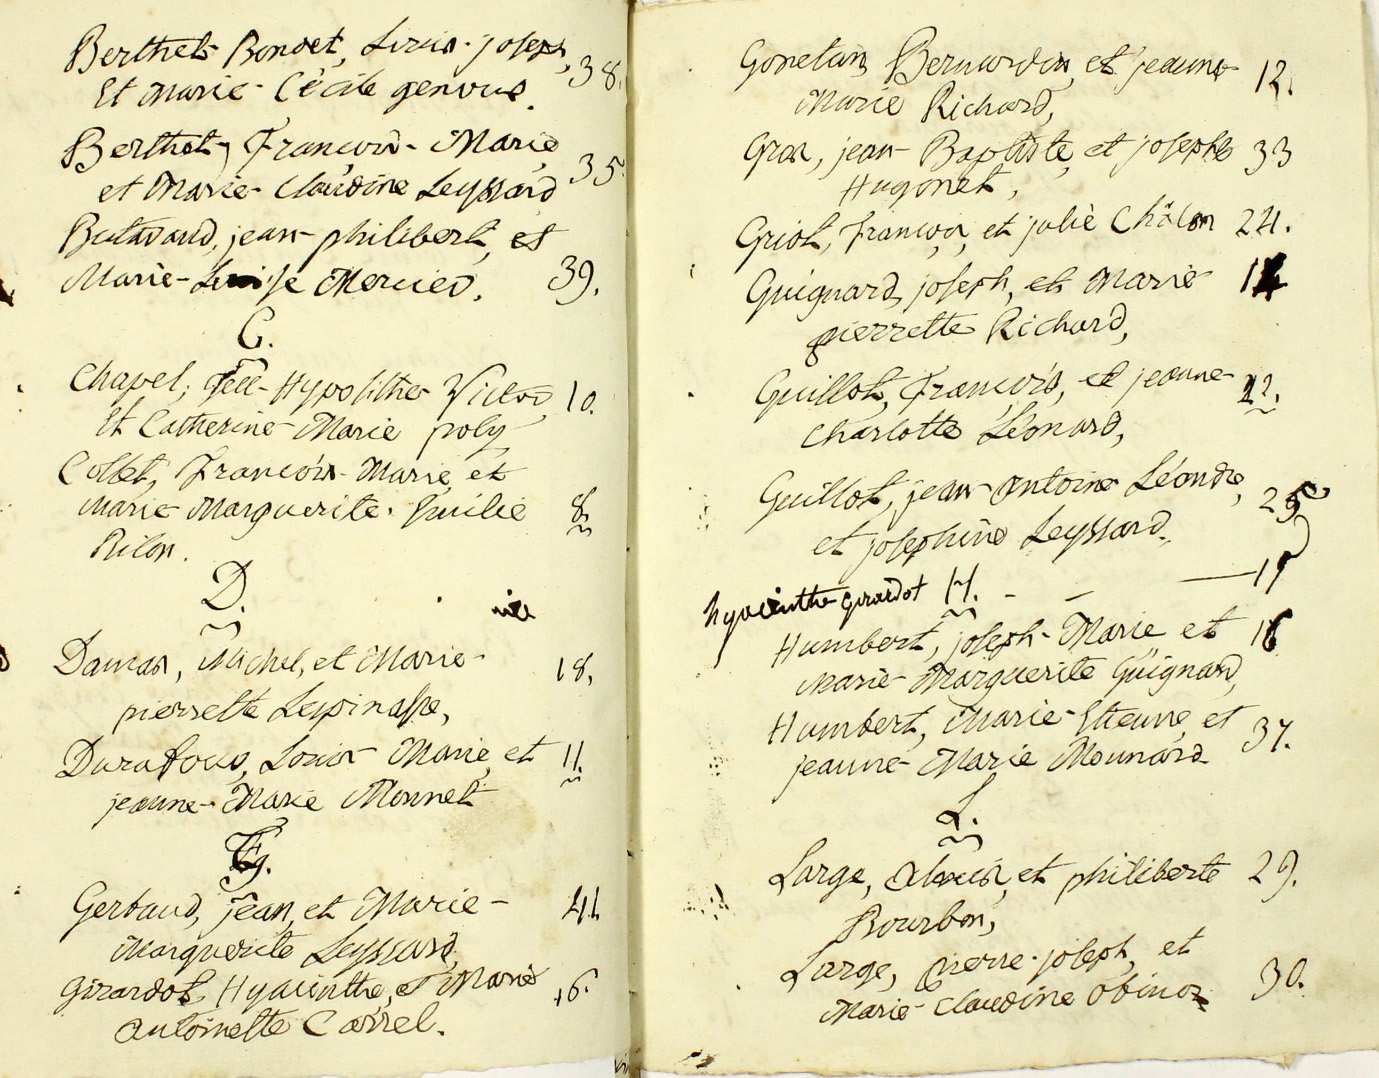 Berthet Bondet, Louis-joseph, 38.
Et Marie-Cécile genoud.
Berthet, François-Marie 35.
et Marie-Claudine Leyssard
Butavand, jean-philibert, et
Marie-Louise Mercier. 39.
C.
Chapel, Hypolithe Victor, 10.
Et Catherine-Marie poly
Collet, François-Marie et
Marie Marguerite 8.
Rilon.
D.
Damas, Michel, et Marie- 18.
pierrette Lespinasse,
Durafour, Louis-Marie, et 11.
jeanne-Marie Monnet
G.
Gerbaud, jean, et Marie- 41.
Marguerite Leyssard,
Girardot, Hyacinthe, et Marie 16.
antoinette Carrel.
Bernardin, et jeanne 12.
Marie Richard,
Gras, jean-Baptiste, et josephte 33
Hugonet,
Griot, François, et julie Châlon 24.
Guignard, joseph, et Marie 14
pierrette Richard,
Guillot, François, et jeanne- 22.
charlotte Léonard,
Guillot, jean-antoine Léandre, 25
et josephine Leyssard.
hyacinthe girardot H. - - — 17
Humbert, joseph-Marie et 16
Marie-Marguerite Guignard,
Humbert, Marie-Etienne, et 37.
jeanne-Marie Mounard
L.
Large, et philiberte 29.
Bourbon,
Large, pierre-joseph, et 30.
Marie-Claudine